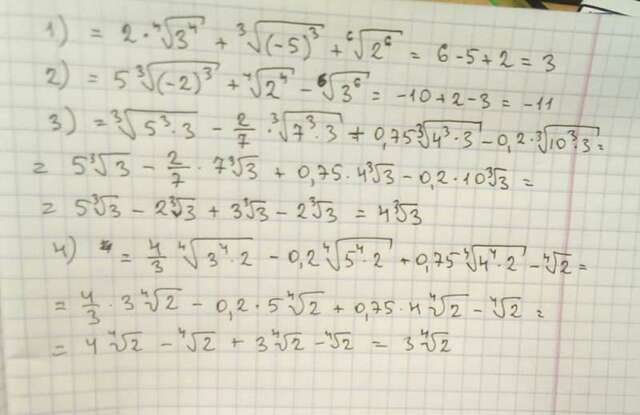 1) = 2 · ⁴√3⁴ + ³√(-5)³ + ⁶√2⁶ = 6 - 5 + 2 = 3
2) = 5 ³√(-2)³ + ⁴√2⁴ - ⁶√3⁶ = -10 + 2 - 3 = -11
3) = ³√5³·3 - 2/7 · ³√7³·3 + 0,75 ³√4³·3 - 0,2 · ³√10³·3 =
= 5³√3 - 2/7 · 7³√3 + 0,75 · 4³√3 - 0,2 · 10³√3 =
= 5³√3 - 2³√3 + 3³√3 - 2³√3 = 4³√3
4) = 4/3 ⁴√3⁴·2 - 0,2 ⁴√5⁴·2 + 0,75 ⁴√4⁴·2 - ⁴√2 =
= 4/3 · 3⁴√2 - 0,2 · 5⁴√2 + 0,75 · 4⁴√2 - ⁴√2 =
= 4⁴√2 - ⁴√2 + 3⁴√2 - ⁴√2 = 3⁴√2